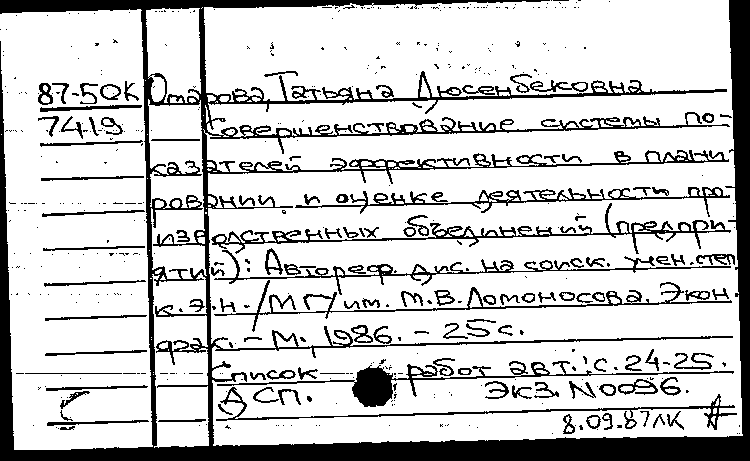 87-50К Отарова, Татьяна Дюсенбековна
7419 Совершенствование системы по-
казателей эффективности в плани-
ровании и оценке деятельности про-
изводственных объединений (предпри-
ятий): Автореф. дис. на соиск. учен. степ.
к.э.н. / МГУ им. М.В. Ломоносова. Экон.
фак. - М., 1986. - 25 с.
Список работ авт.: с. 24-25.
ДСП. Экз. N0096.
8.09.87 ЛК